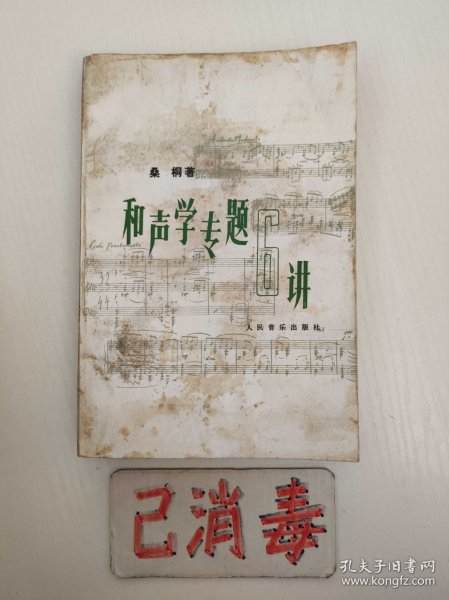 桑 桐著
和声学专题6讲
人民音乐出版社
己消毒
孔夫子旧书网
www.kongfz.com